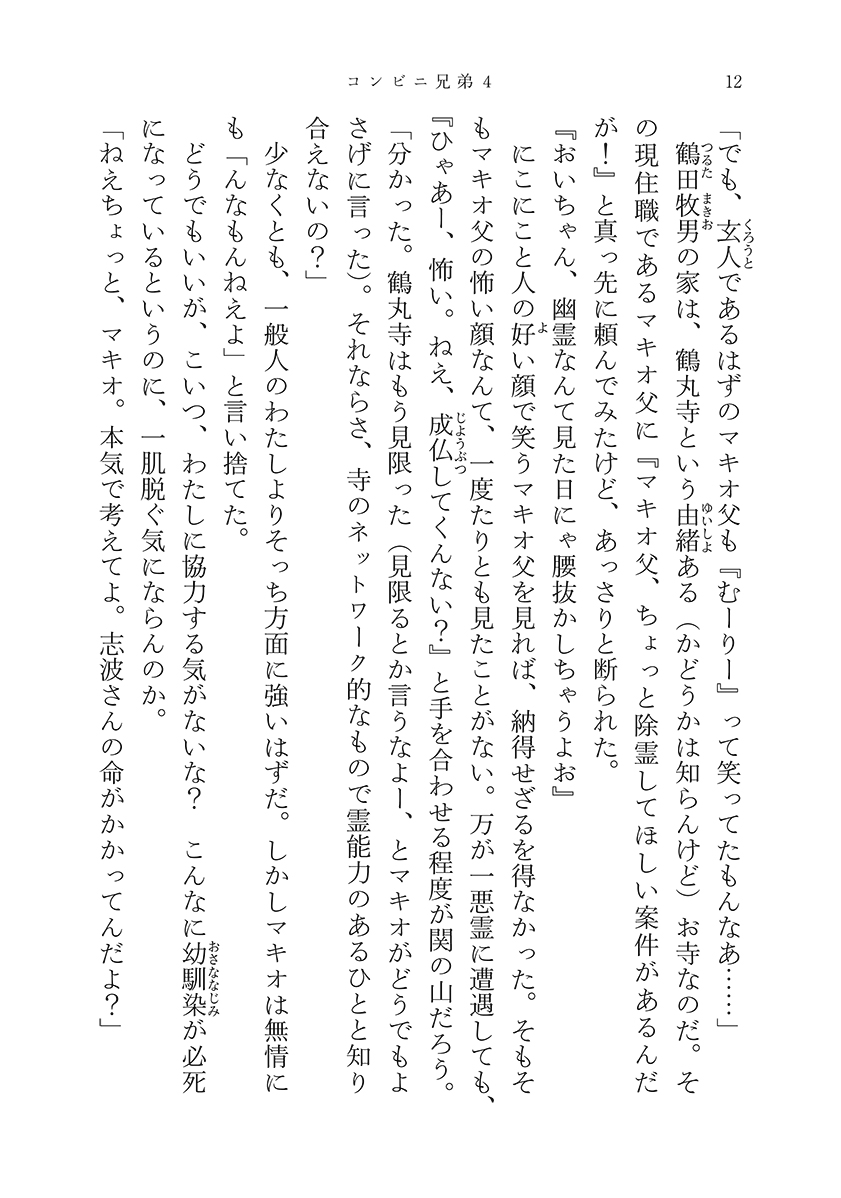 コンビニ兄弟4
12
「でも、玄人であるはずのマキオ父も『むーりー』って笑ってたもんなあ……」
　鶴田牧男の家は、鶴丸寺という由緒ある（かどうかは知らんけど）お寺なのだ。そ
の現住職であるマキオ父に『マキオ父、ちょっと除霊してほしい案件があるんだ
が！』と真っ先に頼んでみたけど、あっさりと断られた。
『おいちゃん、幽霊なんて見た日にゃ腰抜かしちゃうよお』
　にこにこと人の好い顔で笑うマキオ父を見れば、納得せざるを得なかった。そもそ
もマキオ父の怖い顔なんて、一度たりとも見たことがない。万が一悪霊に遭遇しても、
『ひゃあー、怖い。ねえ、成仏してくんない？』と手を合わせる程度が関の山だろう。
「分かった。鶴丸寺はもう見限った（見限るとか言うなよー、とマキオがどうでもよ
さげに言った）。それならさ、寺のネットワーク的なもので霊能力のあるひとと知り
合えないの？」
　少なくとも、一般人のわたしよりそっち方面に強いはずだ。しかしマキオは無情に
も「んなもんねえよ」と言い捨てた。
　どうでもいいが、こいつ、わたしに協力する気がないな？　こんなに幼馴染が必死
になっているというのに、一肌脱ぐ気にならんのか。
「ねえちょっと、マキオ。本気で考えてよ。志波さんの命がかかってんだよ？」
くろうと
つるた
まきお
ゆいしよ
よ
じようぶつ
おさななじみ